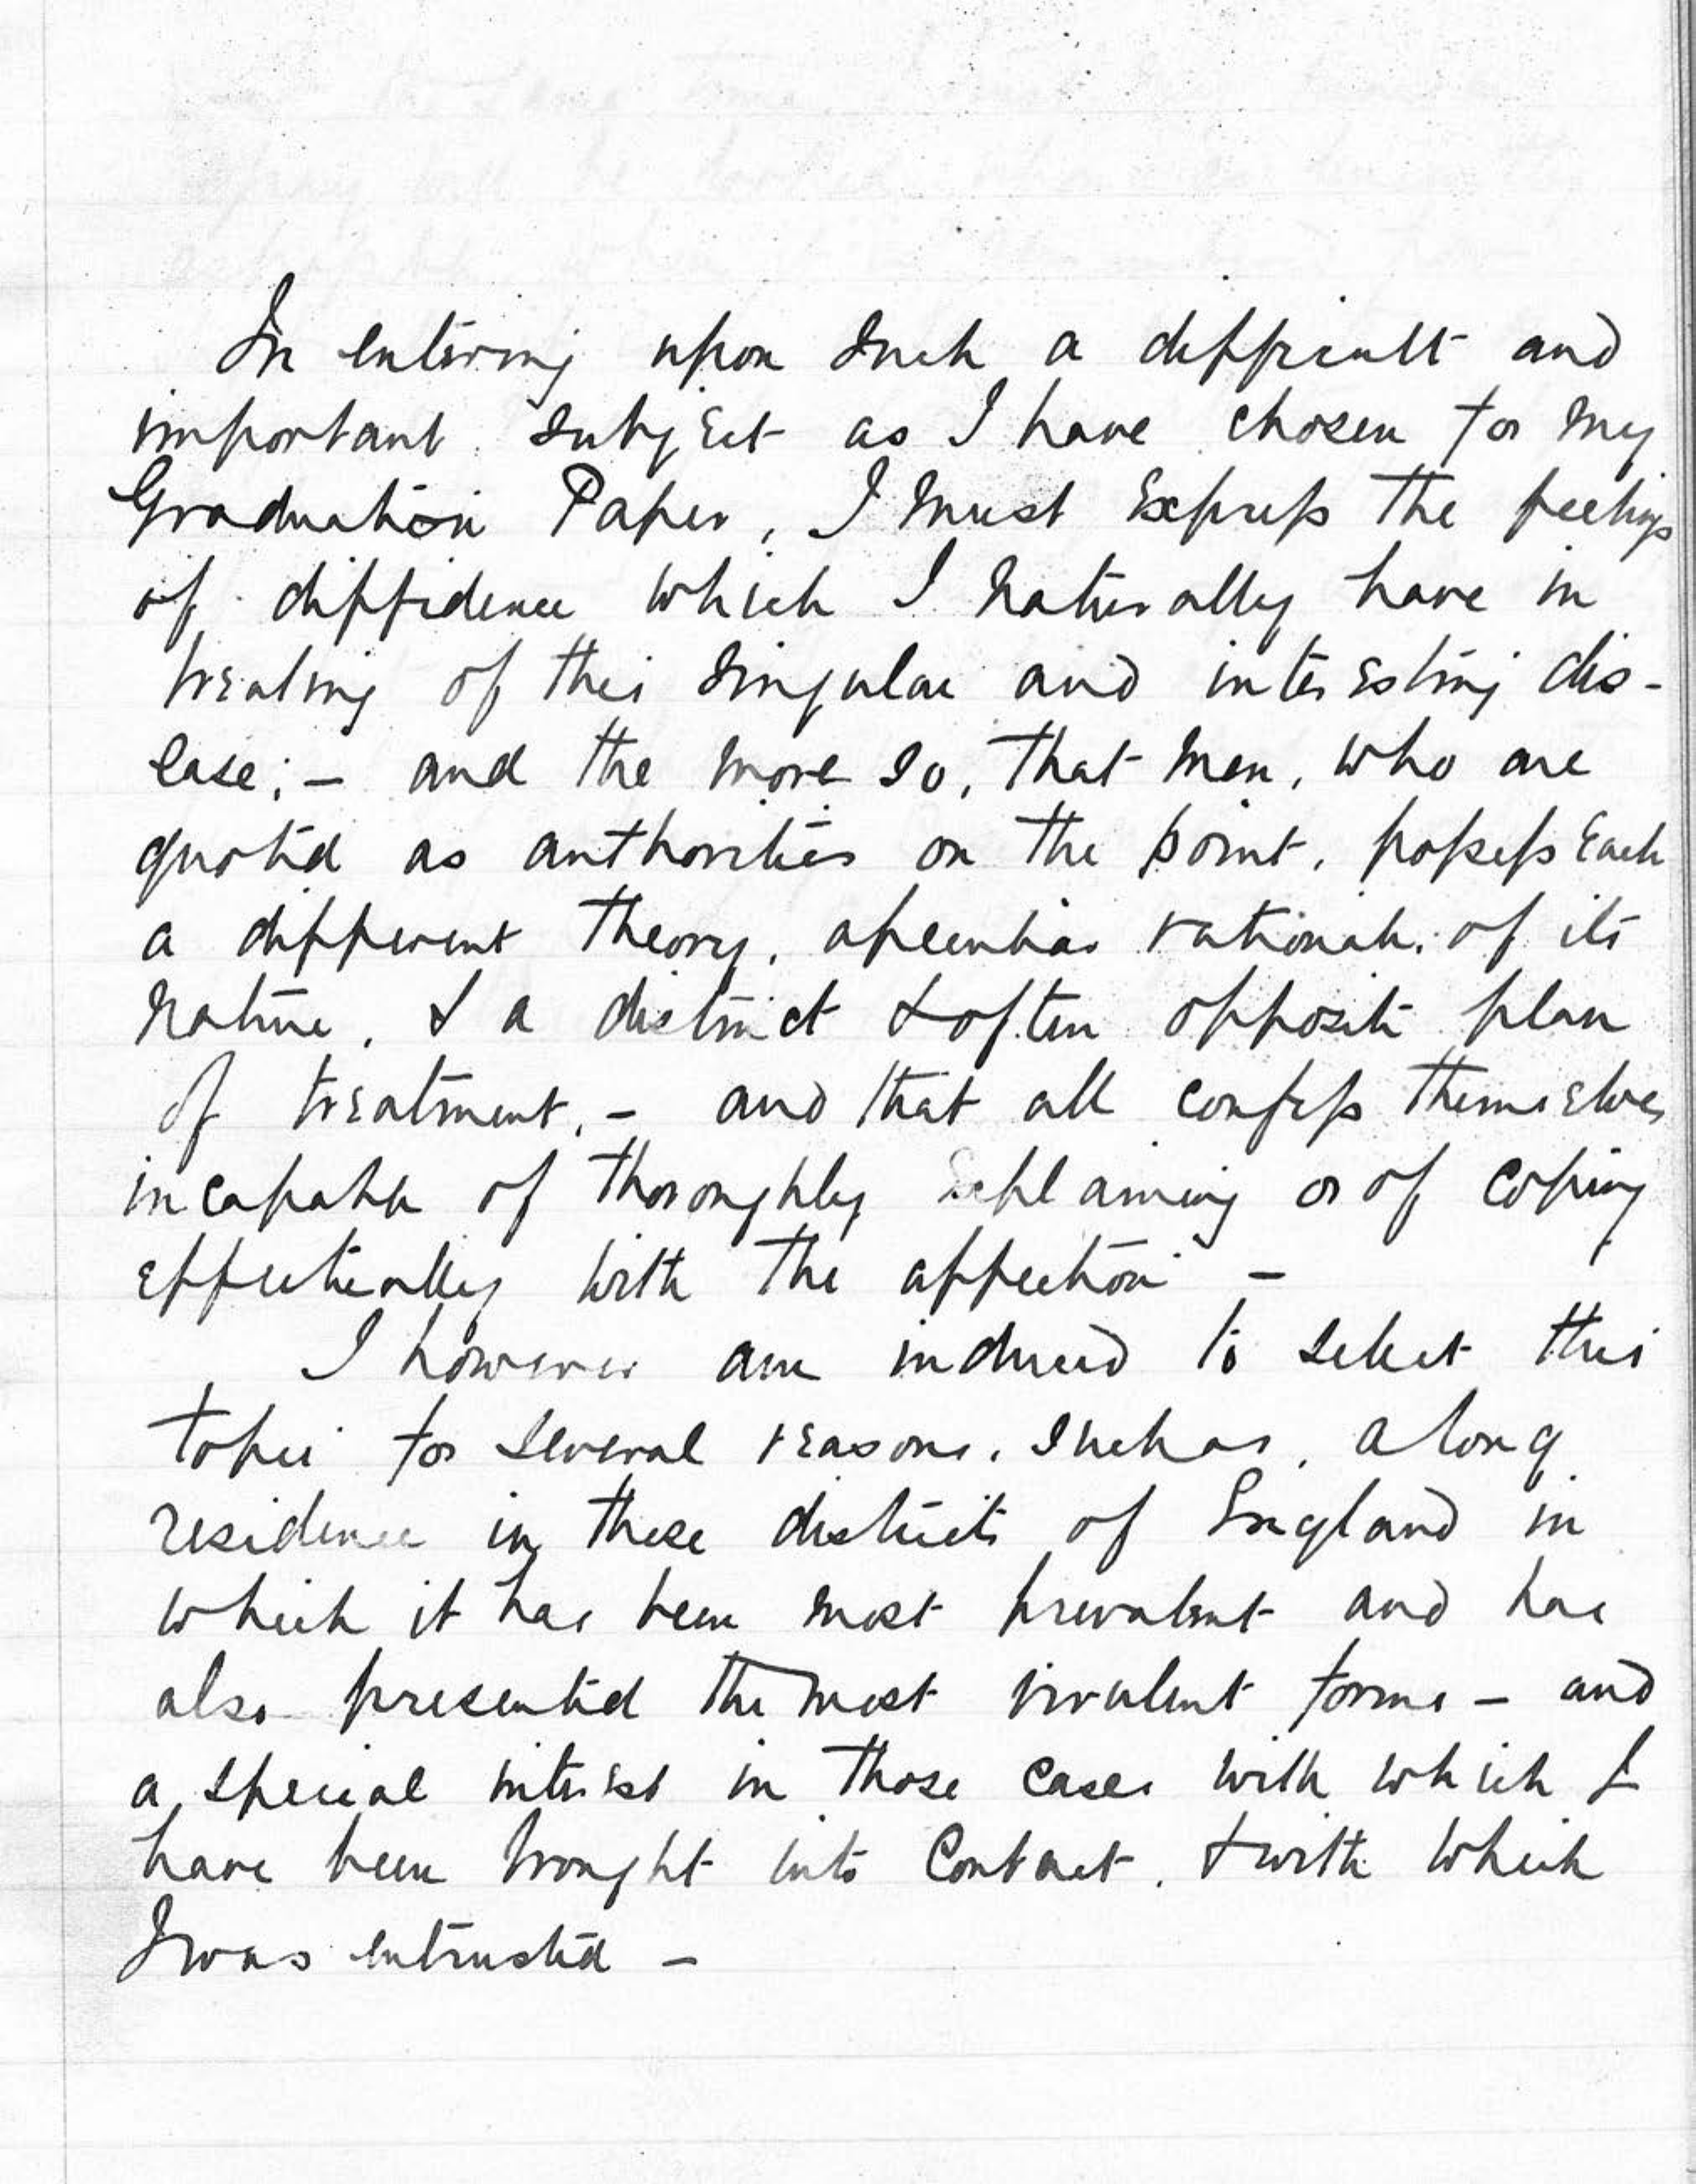 In entering upon such a difficult and
important subject as I have chosen for my
Graduation Paper, I must express the feelings
of diffidence which I naturally have in
treating of this singular and interesting dis-
ease; – and the more so, that men, who are
quoted as authorities on the point, possess each
a different theory, a peculiar rationale of its
nature, & a distinct & often opposite plan
of treatment, – and that all confess themselves
incapable of thoroughly explaining or of coping
effectually with the affection –
I however am induced to select this
topic for several reasons, such as, a long
residence in these districts of England in
which it has been most prevalent and has
also presented the most virulent forms – and
a special interest in those cases with which I
have been brought into contact, & with which
I was entrusted –